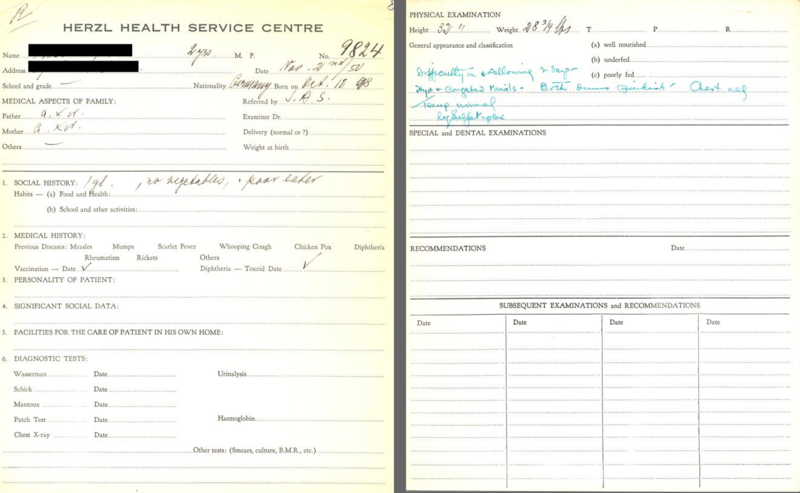 R
HERZL HEALTH SERVICE CENTRE
Name 2 yrs M. F. No. 9824
Address Date Nov. 2nd/50
School and grade — Nationality Germany Born on Oct. 10 48
MEDICAL ASPECTS OF FAMILY: Referred by J.A.S.
Father a. + w. Examiner Dr.
Mother a. + w. Delivery (normal or ?)
Others — Weight at birth
1. SOCIAL HISTORY: , no vegetables, poor eater
Habits — (a) Food and Health:
(b) School and other activities:
2. MEDICAL HISTORY:
Previous Diseases: Measles Mumps Scarlet Fever Whooping Cough Chicken Pox Diphtheria
Rheumatism Rickets Others
Vaccination — Date ✓ Diphtheria — Toxoid Date ✓
3. PERSONALITY OF PATIENT:
4. SIGNIFICANT SOCIAL DATA:
5. FACILITIES FOR THE CARE OF PATIENT IN HIS OWN HOME:
6. DIAGNOSTIC TESTS:
Wasserman Date Urinalysis
Schick Date
Mantoux Date
Patch Test Date Haemoglobin
Chest X-ray Date
Other tests: (Smears, culture, B.M.R., etc.)
PHYSICAL EXAMINATION
Height 33" Weight 28 3/4 lbs T P R
General appearance and classification (a) well nourished
(b) underfed
(c) poorly fed
Difficulty in swallowing 2 days
Congested Tonsils - Both drums pinkish Chest neg
Temp normal
SPECIAL and DENTAL EXAMINATIONS
RECOMMENDATIONS Date
SUBSEQUENT EXAMINATIONS and RECOMMENDATIONS
Date Date Date Date